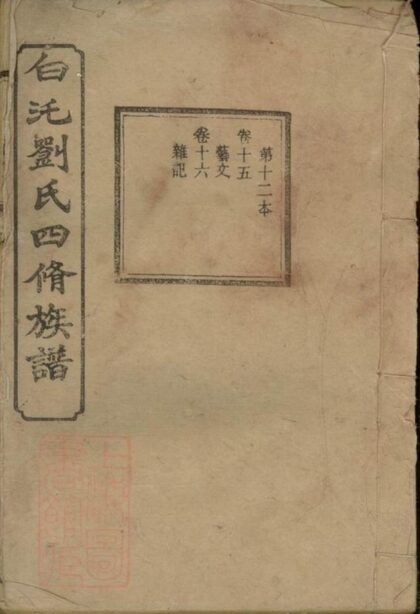 第十二本
卷十五
藝文
卷十六
雜記
白汑劉氏四脩族譜